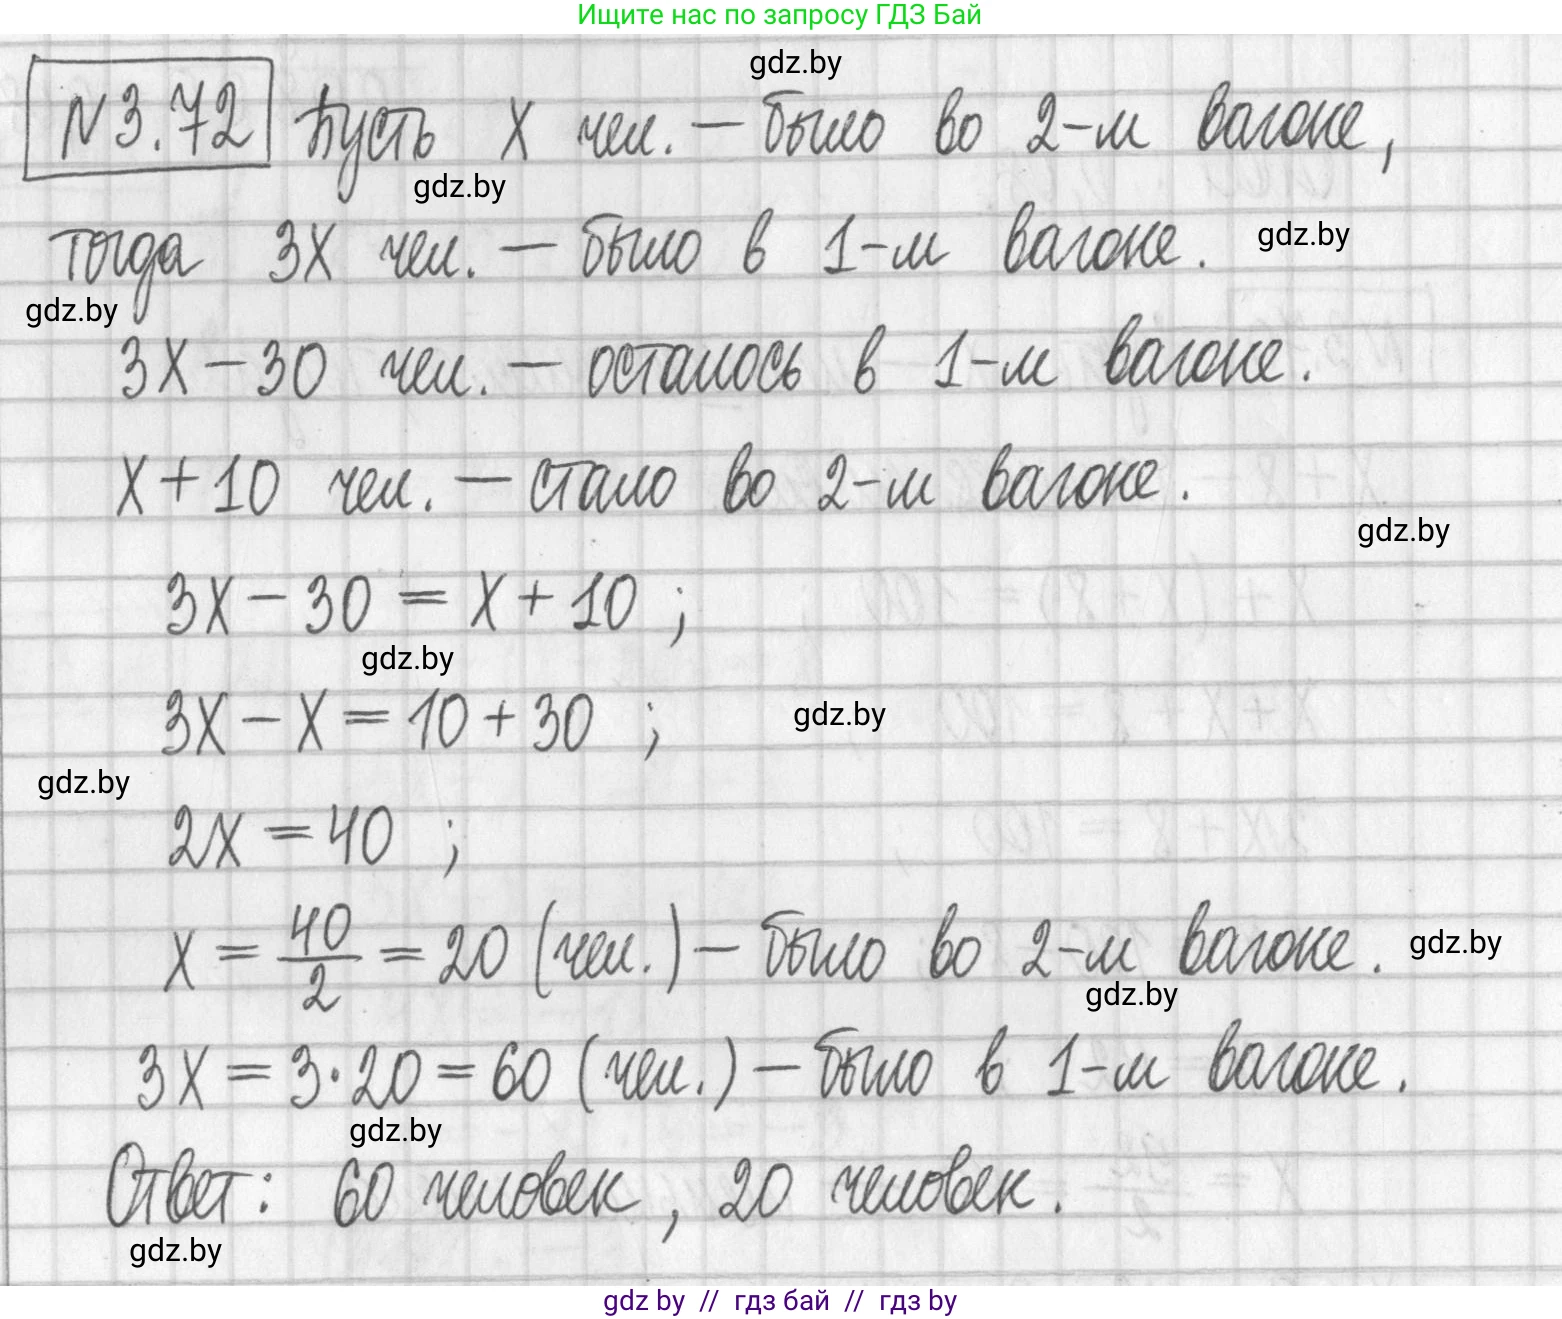 Ищите нас по запросу ГДЗ Бай
gdz.by
N 3.72 Пусть x чел. — было во 2-м вагоне,
gdz.by
тогда 3x чел. — было в 1-м вагоне. gdz.by
gdz.by
3x − 30 чел. — осталось в 1-м вагоне.
x + 10 чел. — стало во 2-м вагоне.
gdz.by
3x − 30 = x + 10 ;
gdz.by
3x − x = 10 + 30 ; gdz.by
gdz.by
2x = 40 ;
x = 40/2 = 20 (чел.) — было во 2-м вагоне. gdz.by
gdz.by
3x = 3·20 = 60 (чел.) — было в 1-м вагоне.
gdz.by
Ответ: 60 человек, 20 человек.
gdz.by
gdz by // гдз бай // гдз by